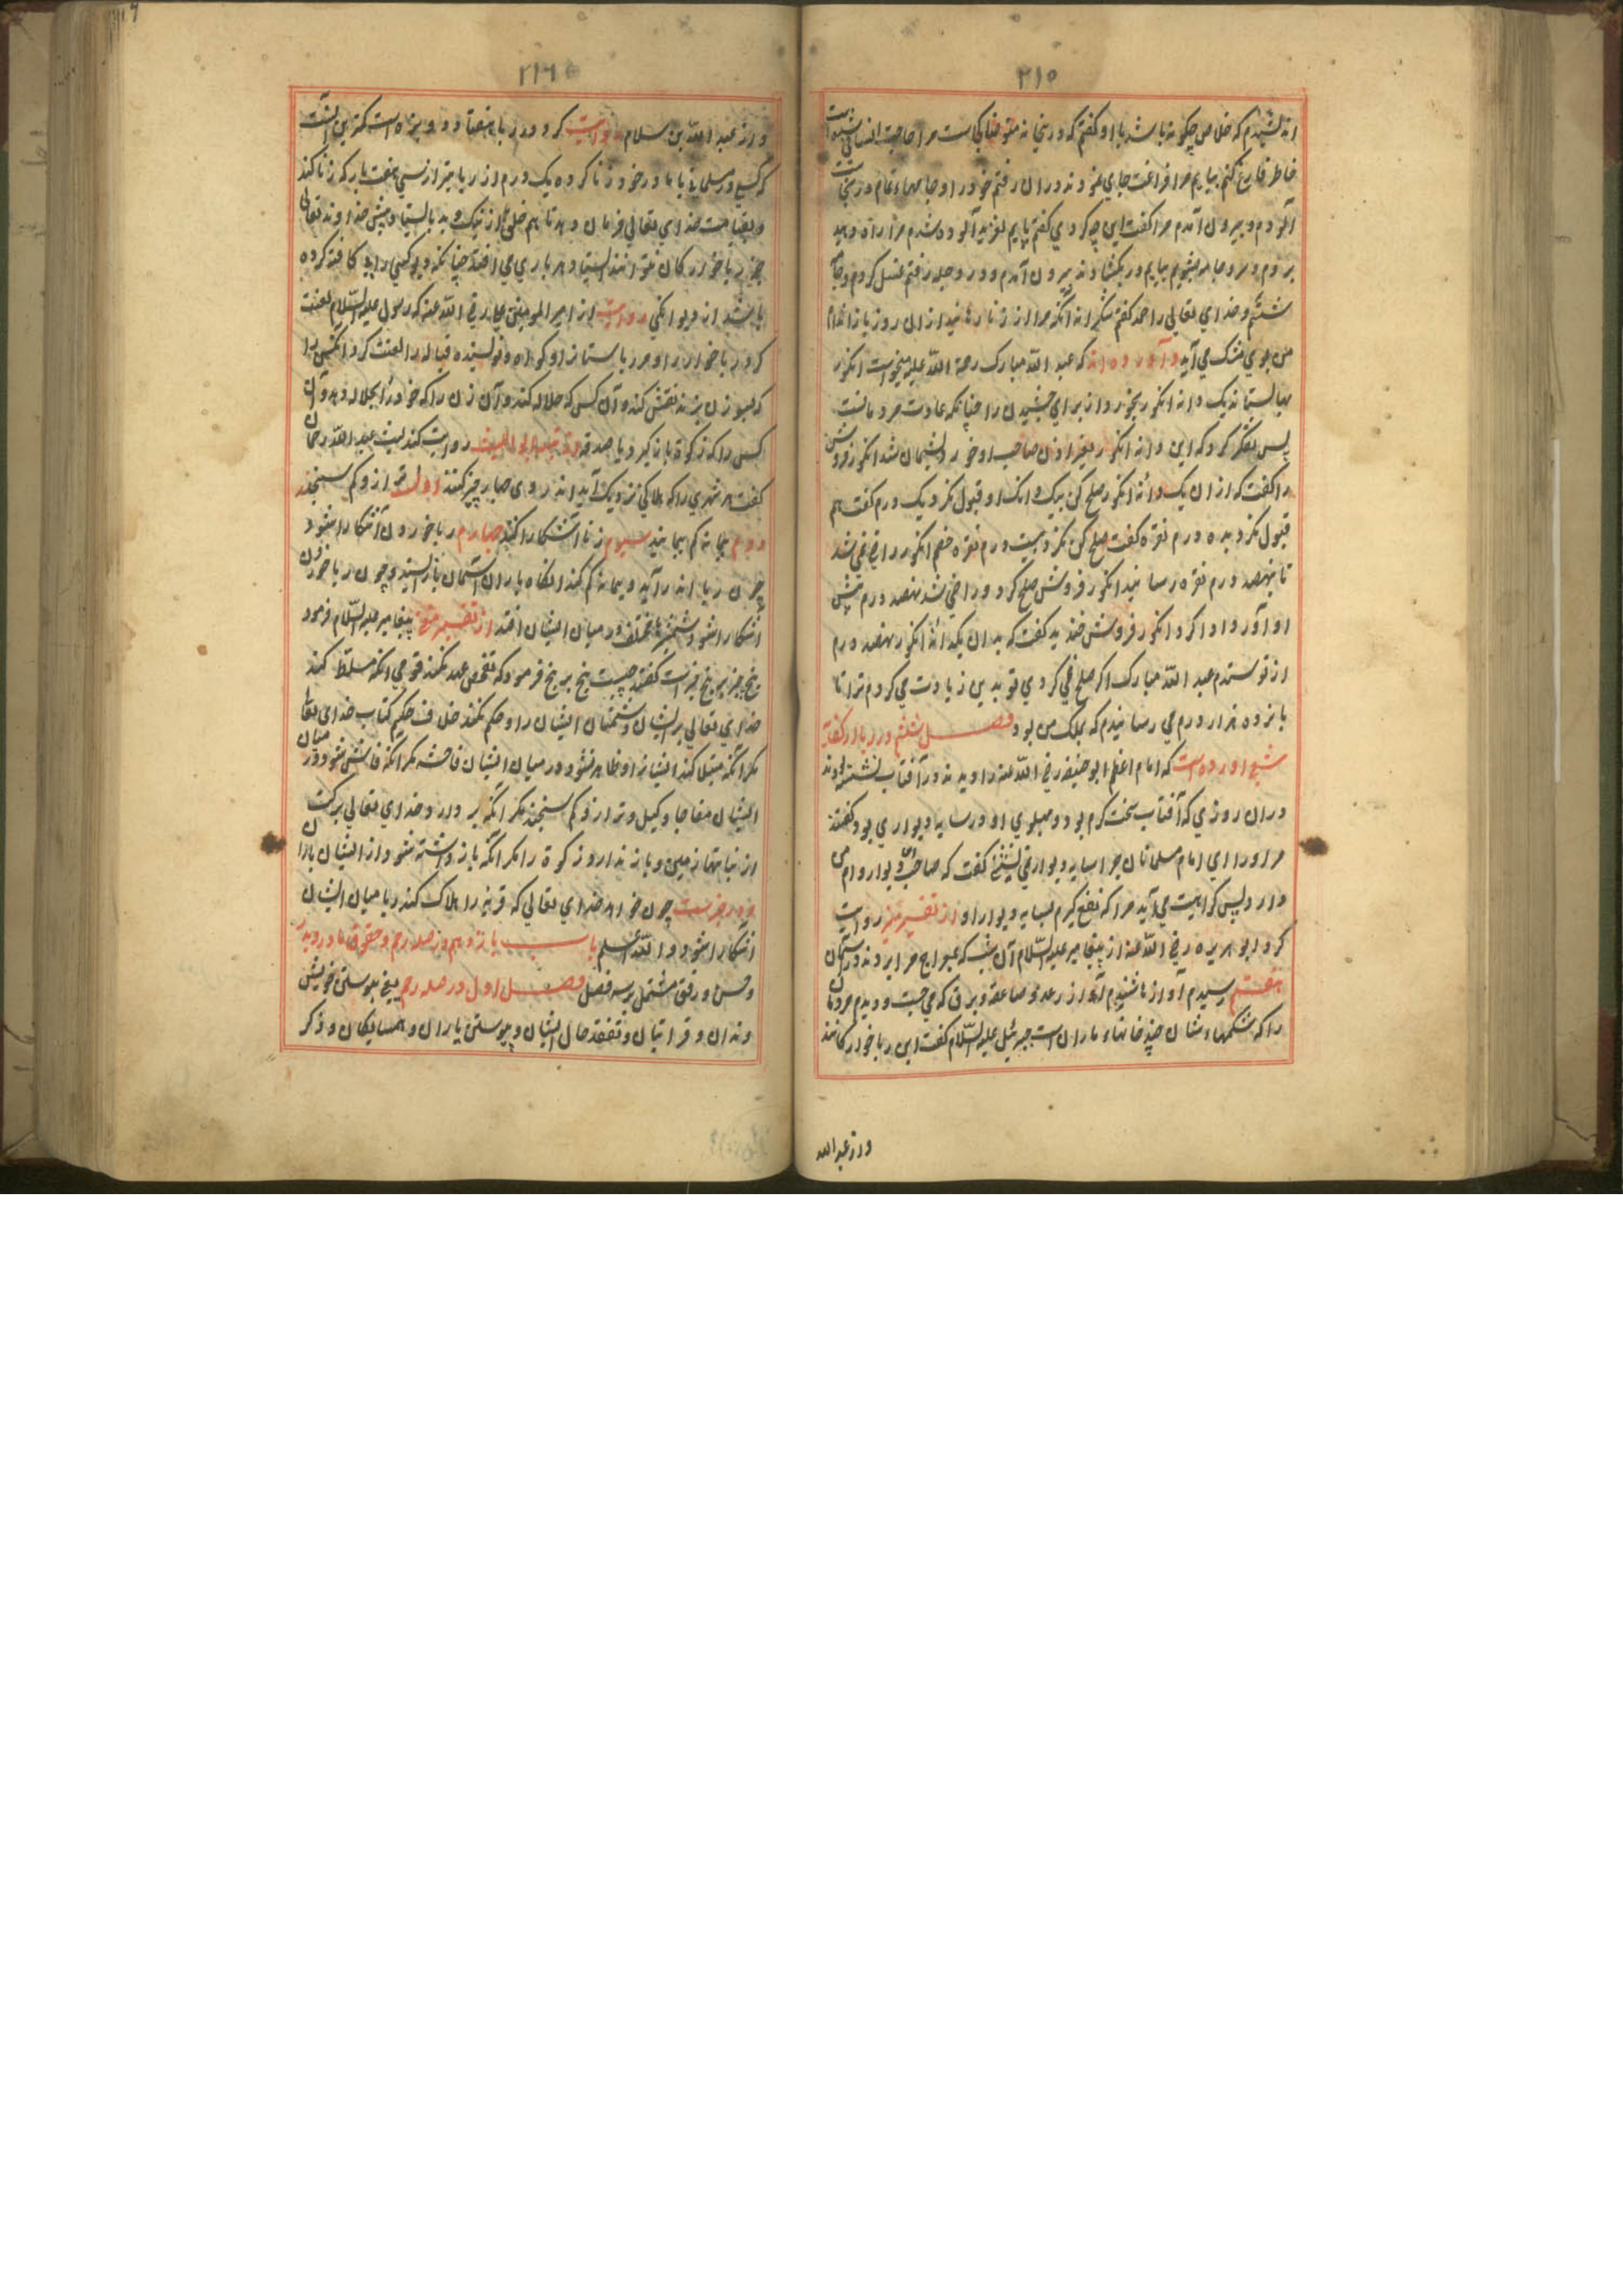 ۲۱۵
اندیشیدم که خلاص چگونه باشد با او گفتم که درین خانه متوضا کی است مرا حاجت انسانی شده است
خاطر فارغ کنم بیایم مرا فراغت جای نمودند دران رفتم خود را و جامهاء تمام در نجاست
آلودم و بیرون آمدم مرا گفت این چه کردی گفتم پایم لغزید آلوده شدم مرا راه دهید
بروم و سر و جامه بشویم بیایم در بکشادند بیرون آمدم و در دجله رفتم غسل کردم و جامه
شستم و خدای تعالی را حمد گفتم شکرانه آنکه مرا از زنا رهانید ازان روز باز از اندام
من بوی مشک می آید و آورده اند که عبد الله مبارک رحمة الله علیه میخواست انگور
بستاند یک دانه انگور بخورد از برای چشیدن را چنانکه عادت مردمانست
پس تفکر کرد که این دانه انگور بغیر اذن صاحب او خورد پشیمان شد انگور فروش
را گفت که ازان یک دانه انگور صلح کن بیک دانک او قبول نکرد یک درم گفت هم
قبول نکرد بده درم نقره گفت صلح کن نکرد بیست درم نقره خصم انگور راضی نمی شد
تا پنهصد درم نقره رسانید انگور فروش صلح کرد و راضی شد پنهصد درم پیش
او آورد و ادا کرد انگور فروش خندید گفت که بدان یکدانه انگور پنهصد درم
از تو ستدم عبد الله مبارک اگر صلح نمی کردی تو بدین زیادت می کردم ترا تا
پانزده هزار درم می رسانیدم که بملک من بود فصل ششم در ربا در کفایه
شعبی آورده است که امام اعظم ابو حنیفه رضی الله عنه را دیدند در آفتاب نشسته بودند
دران روزی که آفتاب سخت گرم بود و پهلوی او در سایه دیواری بود گفتند
مر او را ای امام مسلمانان چرا سایه دیوار نمی نشینی گفت که صاحب دیوار وام من
دارد پس کراهیت می آید مرا که نفع گیرم بسایه دیوار او از تفسیر منیر روایت
کرد ابو هریره رضی الله عنه از پیغامبر علیه السلام آن شب که بمعراج مرا بردند در آسمان
هفتم رسیدم آوازها شنیدم آواز رعد و صاعقه و برق که می جست و دیدم مردمان
را که شکمهاء شان چند خانهاء ماران است جبرئیل علیه السلام گفت این ربا خوارگانند
و از عبد الله
۲۱۶
و از عبد الله بن سلام روایت کرد در ربا هفتاد و دو بزه است کمترین آنست
که کسی در مسلمانی با مادر خود زنا کرده یک درم از ربا بتر از سی هفت بار که زنا کند
و بقیامت خدای تعالی فرمان دهد تا هم خلق از نیک و بد بایستد پیش خداوند تعالی
جز ربا خوارگان نتوانند ایستاد هر باری می افتند چنانکه دیو کسی را بد کافته کرده
باشد از دیوانگی روایت از امیر المومنین علی رضی الله عنه که رسول علیه السلام لعنت
کرد ربا خوار را و مر ربا ستان را و گواه و نویسنده قباله را لعنت کرد آنکسی را
که بسوزن بزند نقش کند و آن کس که حلاله کند و آن زن را که خود را بحلاله دهد و آن
کس را که زکوة باز گیرد یا صدقه فقیه ابو اللیث روایت کند لیث عبد الله رحمان
گفت هر شهری را که هلاکی نزدیک آید اند روی چهار چیز کنند اول ترازو کم سنجند
دوم پیمانه کم پیمایند سیوم زنا آشکارا کنند چهارم ربا خوردن آشکارا شود
چون ربا اندر آید و پیمانه کم کنند آنگاه باران آسمان باز ایستد و چون ربا خوردن
آشکارا شود شمشیرهای مختلف در میان ایشان افتد از تفسیر منح پیغامبر علیه السلام فرمود
پنج چیز بر پنج چیز است گفتند چیست پنج بر پنج فرمود که نقض عهد نکنند قومی آنکه مسلط کند
خدای تعالی بر ایشان دشمنان ایشان را و حکم نکنند خلاف حکم کتاب خدای تعالی
مکر آنکه مبتلا کند ایشانرا و ظاهر نشود در میان ایشان فاحشه مکر آنکه فاش شود در میان
ایشان مفاجا و کیل و ترازو کم سنجند مکر آنکه بردارد خدای تعالی برکت
از نباتهاء زمین و باز ندارد زکوة را مکر آنکه باز داشته شود از ایشان باران
و در خبر ست چون خواهد خدای تعالی که قریه را هلاک کند ربا میان ایشان
آشکارا شود و الله اعلم باب یازدهم در صله رحم و حقوق مادر و پدر
و حسن و رفق مشتمل بر سه فصل فصل اول در صله رحم یعنی پیوستن خویش
وندان و قراتبان و تفقد حال ایشان و پیوستن یاران و همسایگان و ذکر